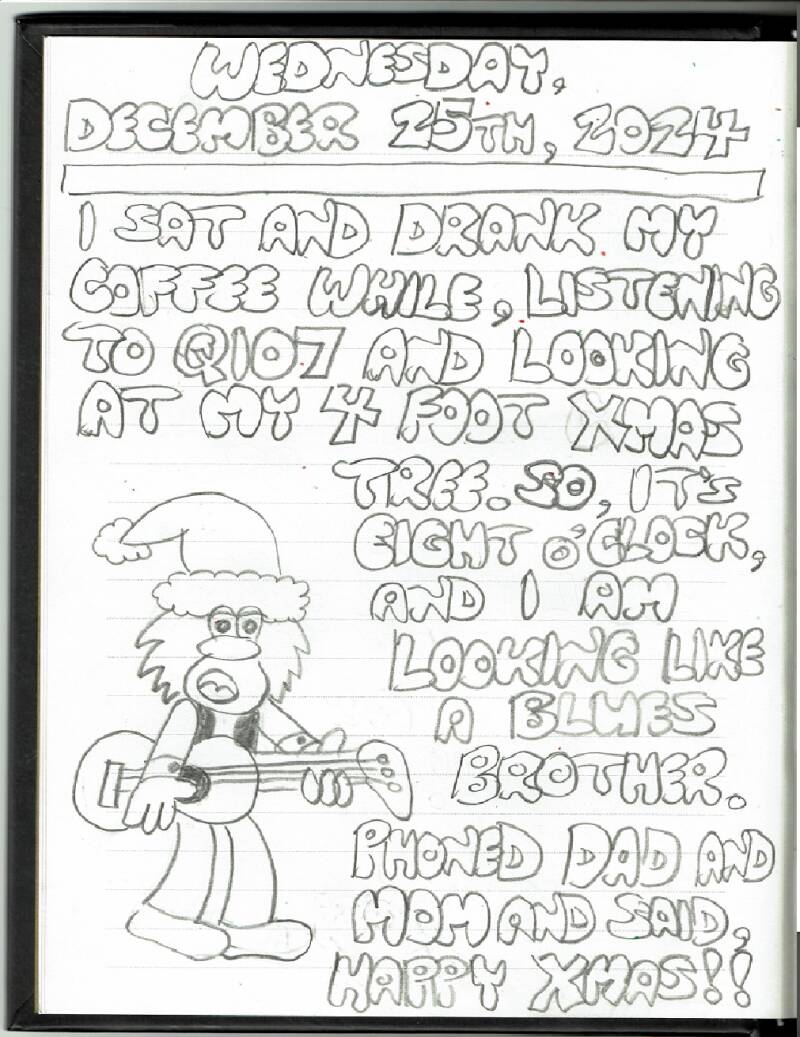 WEDNESDAY,
DECEMBER 25TH, 2024
I SAT AND DRANK MY
COFFEE WHILE, LISTENING
TO Q107 AND LOOKING
AT MY 4 FOOT XMAS
TREE. SO, IT'S
EIGHT O'CLOCK,
AND I AM
LOOKING LIKE
A BLUES
BROTHER.
PHONED DAD AND
MOM AND SAID,
HAPPY XMAS!!